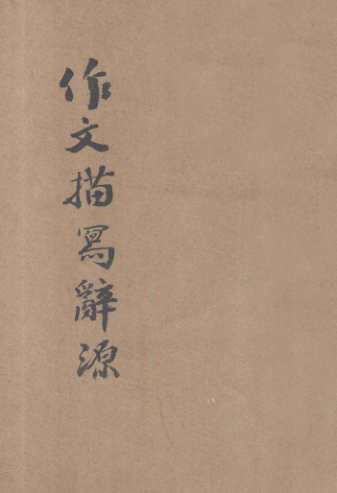 作文描冩辭源